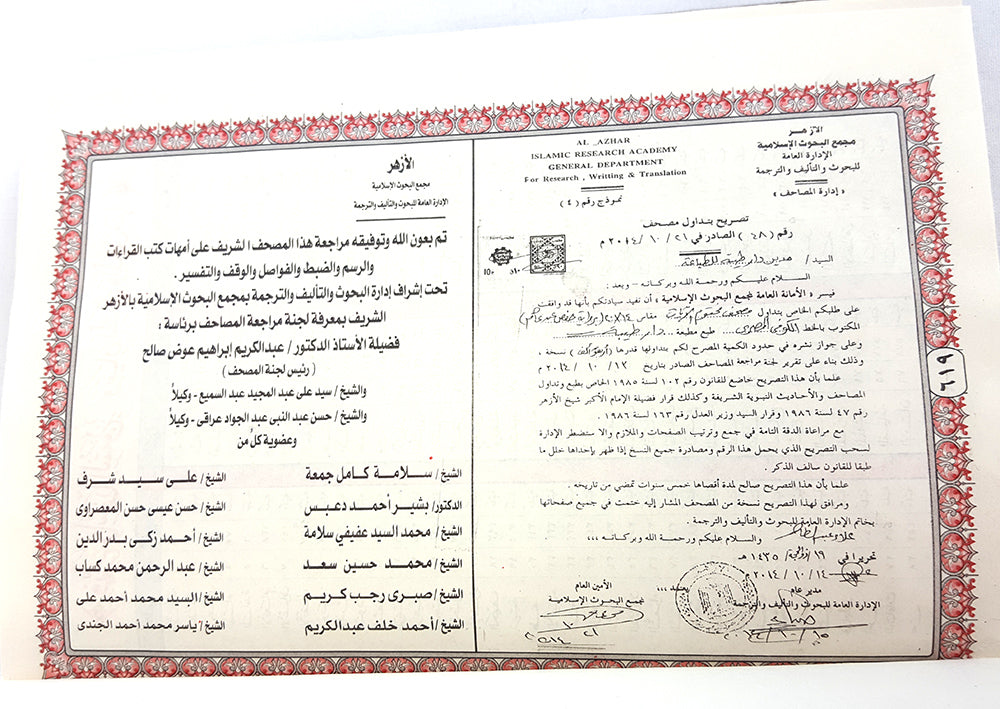 الأزهر
مجمع البحوث الإسلامية
الإدارة العامة
للبحوث والتأليف والترجمة
« إدارة المصاحف »
AL _AZHAR
ISLAMIC RESEARCH ACADEMY
GENERAL DEPARTMENT
For Research , Writting & Translation
نموذج رقم ( ٤ )
تصريح بتداول مصحف
رقم ( ٤٨ ) الصادر في ٢١ / ١٠ / ٢٠١٤ م
السيد / مدير دار طيبة للطباعة
السلام عليكم ورحمة الله وبركاته - وبعد :
فيسر « الأمانة العامة لمجمع البحوث الإسلامية » أن تفيد سيادتكم بأنها قد وافقت
على طلبكم الخاص بتداول مصحف مقاس ١٤×٢٠ برواية حفص عن عاصم
المكتوب بالخط طبع مطبعة .. دار طيبة
وعلى جواز نشره في حدود الكمية المصرح لكم بتداولها قدرها نسخة ,
وذلك بناء على تقرير لجنة مراجعة المصاحف الصادر بتاريخ ١٣ / ١٠ / ٢٠١٤ م
علما بأن هذا التصريح خاضع للقانون رقم ١٠٢ لسنة ١٩٨٥ الخاص بطبع وتداول
المصاحف والأحاديث النبوية الشريفة وكذلك قرار فضيلة الإمام الأكبر شيخ الأزهر
رقم ٤٧ لسنة ١٩٨٦ وقرار السيد وزير العدل رقم ١٦٣ لسنة ١٩٨٦ .
مع مراعاة الدقة التامة في جمع وترتيب الصفحات والملازم والا ستضطر الإدارة
لسحب التصريح الذي يحمل هذا الرقم ومصادرة جميع النسخ إذا ظهر بإحداها خلل ما
طبقا للقانون سالف الذكر .
علما بأن هذا التصريح صالح لمدة أقصاها خمس سنوات تمضي من تاريخه .
ومرافق لهذا التصريح نسخة من المصحف المشار إليه ختمت في جميع صفحاتها
بخاتم الإدارة العامة للبحوث والتأليف والترجمة .
والسلام عليكم ورحمة الله وبركاته ,,,
تحريرا في ١٩ / ذو الحجة / ١٤٣٥ هـ
١٤ / ١٠ / ٢٠١٤ م
مدير عام
الإدارة العامة للبحوث والتأليف والترجمة
الأمين العام
لمجمع البحوث الإسلامية
٦١٩
الأزهر
مجمع البحوث الإسلامية
الإدارة العامة للبحوث والتأليف والترجمة
تم بعون الله وتوفيقه مراجعة هذا المصحف الشريف على أمهات كتب القراءات
والرسم والضبط والفواصل والوقف والتفسير .
تحت إشراف إدارة البحوث والتأليف والترجمة بمجمع البحوث الإسلامية بالأزهر
الشريف بمعرفة لجنة مراجعة المصاحف برئاسة :
فضيلة الأستاذ الدكتور / عبدالكريم إبراهيم عوض صالح
( رئيس لجنة المصحف )
والشيخ / سيد على عبد المجيد عبد السميع - وكيلاً
والشيخ / حسن عبد النبى عبد الجواد عراقى - وكيلاً
وعضوية كل من
الشيخ / سلامة كامل جمعة الشيخ / على سيد شرف
الدكتور / بشير أحمد دعبس الشيخ / حسن عيسى حسن المعصراوى
الشيخ / محمد السيد عفيفي سلامة الشيخ / أحمد زكى بدر الدين
الشيخ / محمد حسين سعد الشيخ / عبد الرحمن محمد كساب
الشيخ / صبرى رجب كريم الشيخ / السيد محمد أحمد على
الشيخ / أحمد خلف عبدالكريم الشيخ / ياسر محمد أحمد الجندى